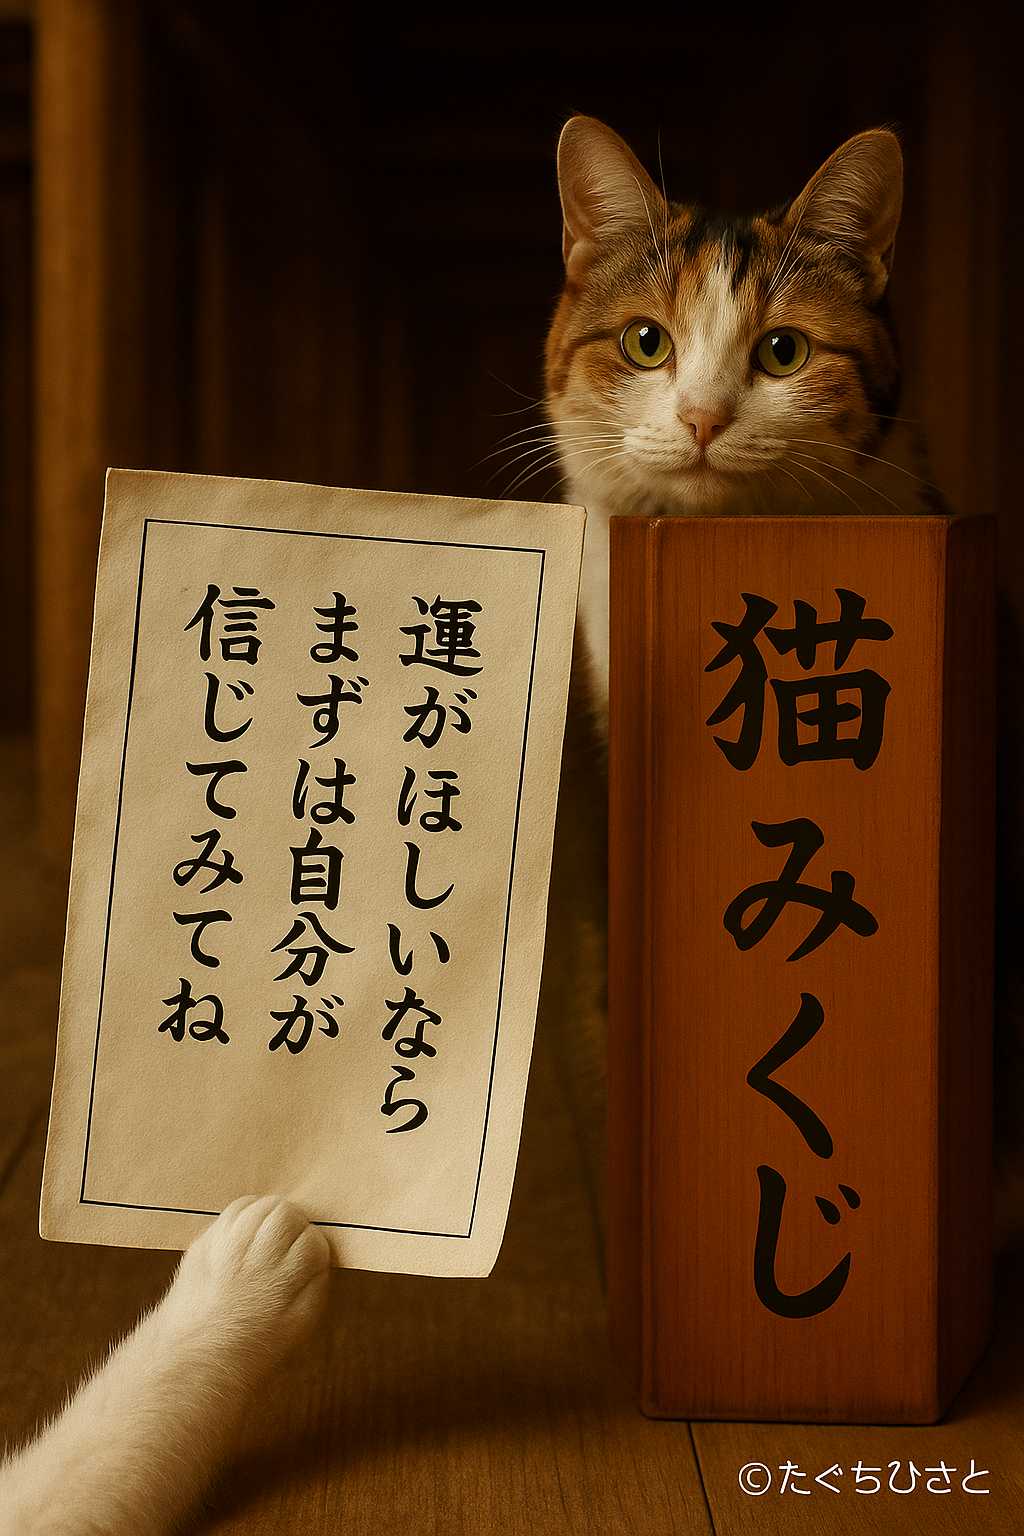 運がほしいなら
まずは自分が
信じてみてね
猫みくじ
©たぐちひさと